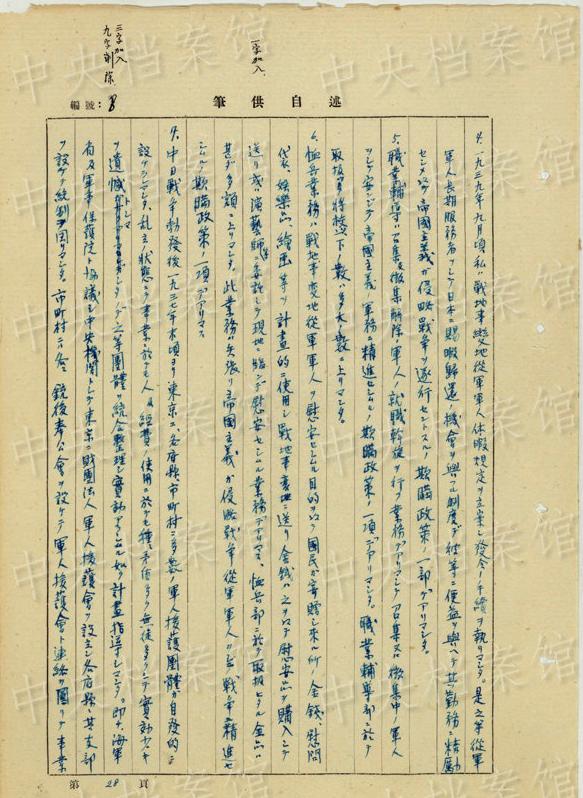 三字加入
九字削除
一字加入
編號：8
述自供筆
4. 一九三九年九月頃私ハ戰地事變地從軍軍人休暇規定ヲ立案シ發令ノ手續ヲ執リマシタ。是之等從軍
軍人長期服務者ヲシテ日本ニ賜暇歸還ノ機會ヲ與フル制度デ彼等ニ便益ヲ與ヘテ其ノ勤務ニ精勵
センメ以テ帝國主義ガ侵略戰爭ヲ遂行セントスル欺瞞政策ノ一部デアリマシタ。
5. 職業輔導ハ召集及徴集解除ノ軍人ノ就職斡旋ヲ行フ業務デアリマシテ召集又ハ徴集中ノ軍人
ヲシテ安ンジテ帝國主義ノ軍務ニ精進セシムル欺瞞政策ノ一項デアリマシタ。職業輔導部ニ於テ
取扱ヒタ將校以下ノ數ハ多大ノ數ニ上リマシタ。
6. 恤兵業務ハ戰地事變地從軍軍人ヲ慰安セシムル目的ヲ以テ國民ガ寄贈シ來ル所ノ金錢、慰問
袋、娯樂品、繪画等ヲ計画的ニ使用シ戰地事變地ニ送リ金錢ハ之ヲ以テ慰安品ヲ購入シテ
送リ或ハ演藝師等ニ委託シテ現地ニ臨ンデ慰安セシムル業務デアリマス、恤兵部ニ於テ取扱ヒタル金品ハ
甚ダ多額ニ上リマシタ。此業務ハ矢張リ帝國主義ガ侵略戰爭ニ從軍軍人ヲシテ戰爭ニ精進セ
シムル欺瞞政策ノ一項デアリマス
7. 中日戰爭勃發後一九三七年末頃ヨリ東京ニ、各府縣、市町村ニ多數ノ軍人援護團體ガ自發的ニ
設ケラレマシタ、乱立ノ狀態ニテ事業ニ於テモ人及經費ノ使用ニ於テモ種々矛盾多ク無徒多クシテ實効少キ
ヲ遺憾トシマシテ之等團體ヲ統合整理シ實効アラシムル如ク計畫指導シマシタ。即チ海軍
省及軍事保護院ト協議シ中央機関トシテ東京ニ財團法人軍人援護會ヲ設立シ各府縣ニ其支部
ヲ設ケテ統制ヲ図リマシタ、市町村ニハ各銃後奉公會ヲ設ケテ軍人援護會ト連絡ヲ圖リテ事業
第28頁